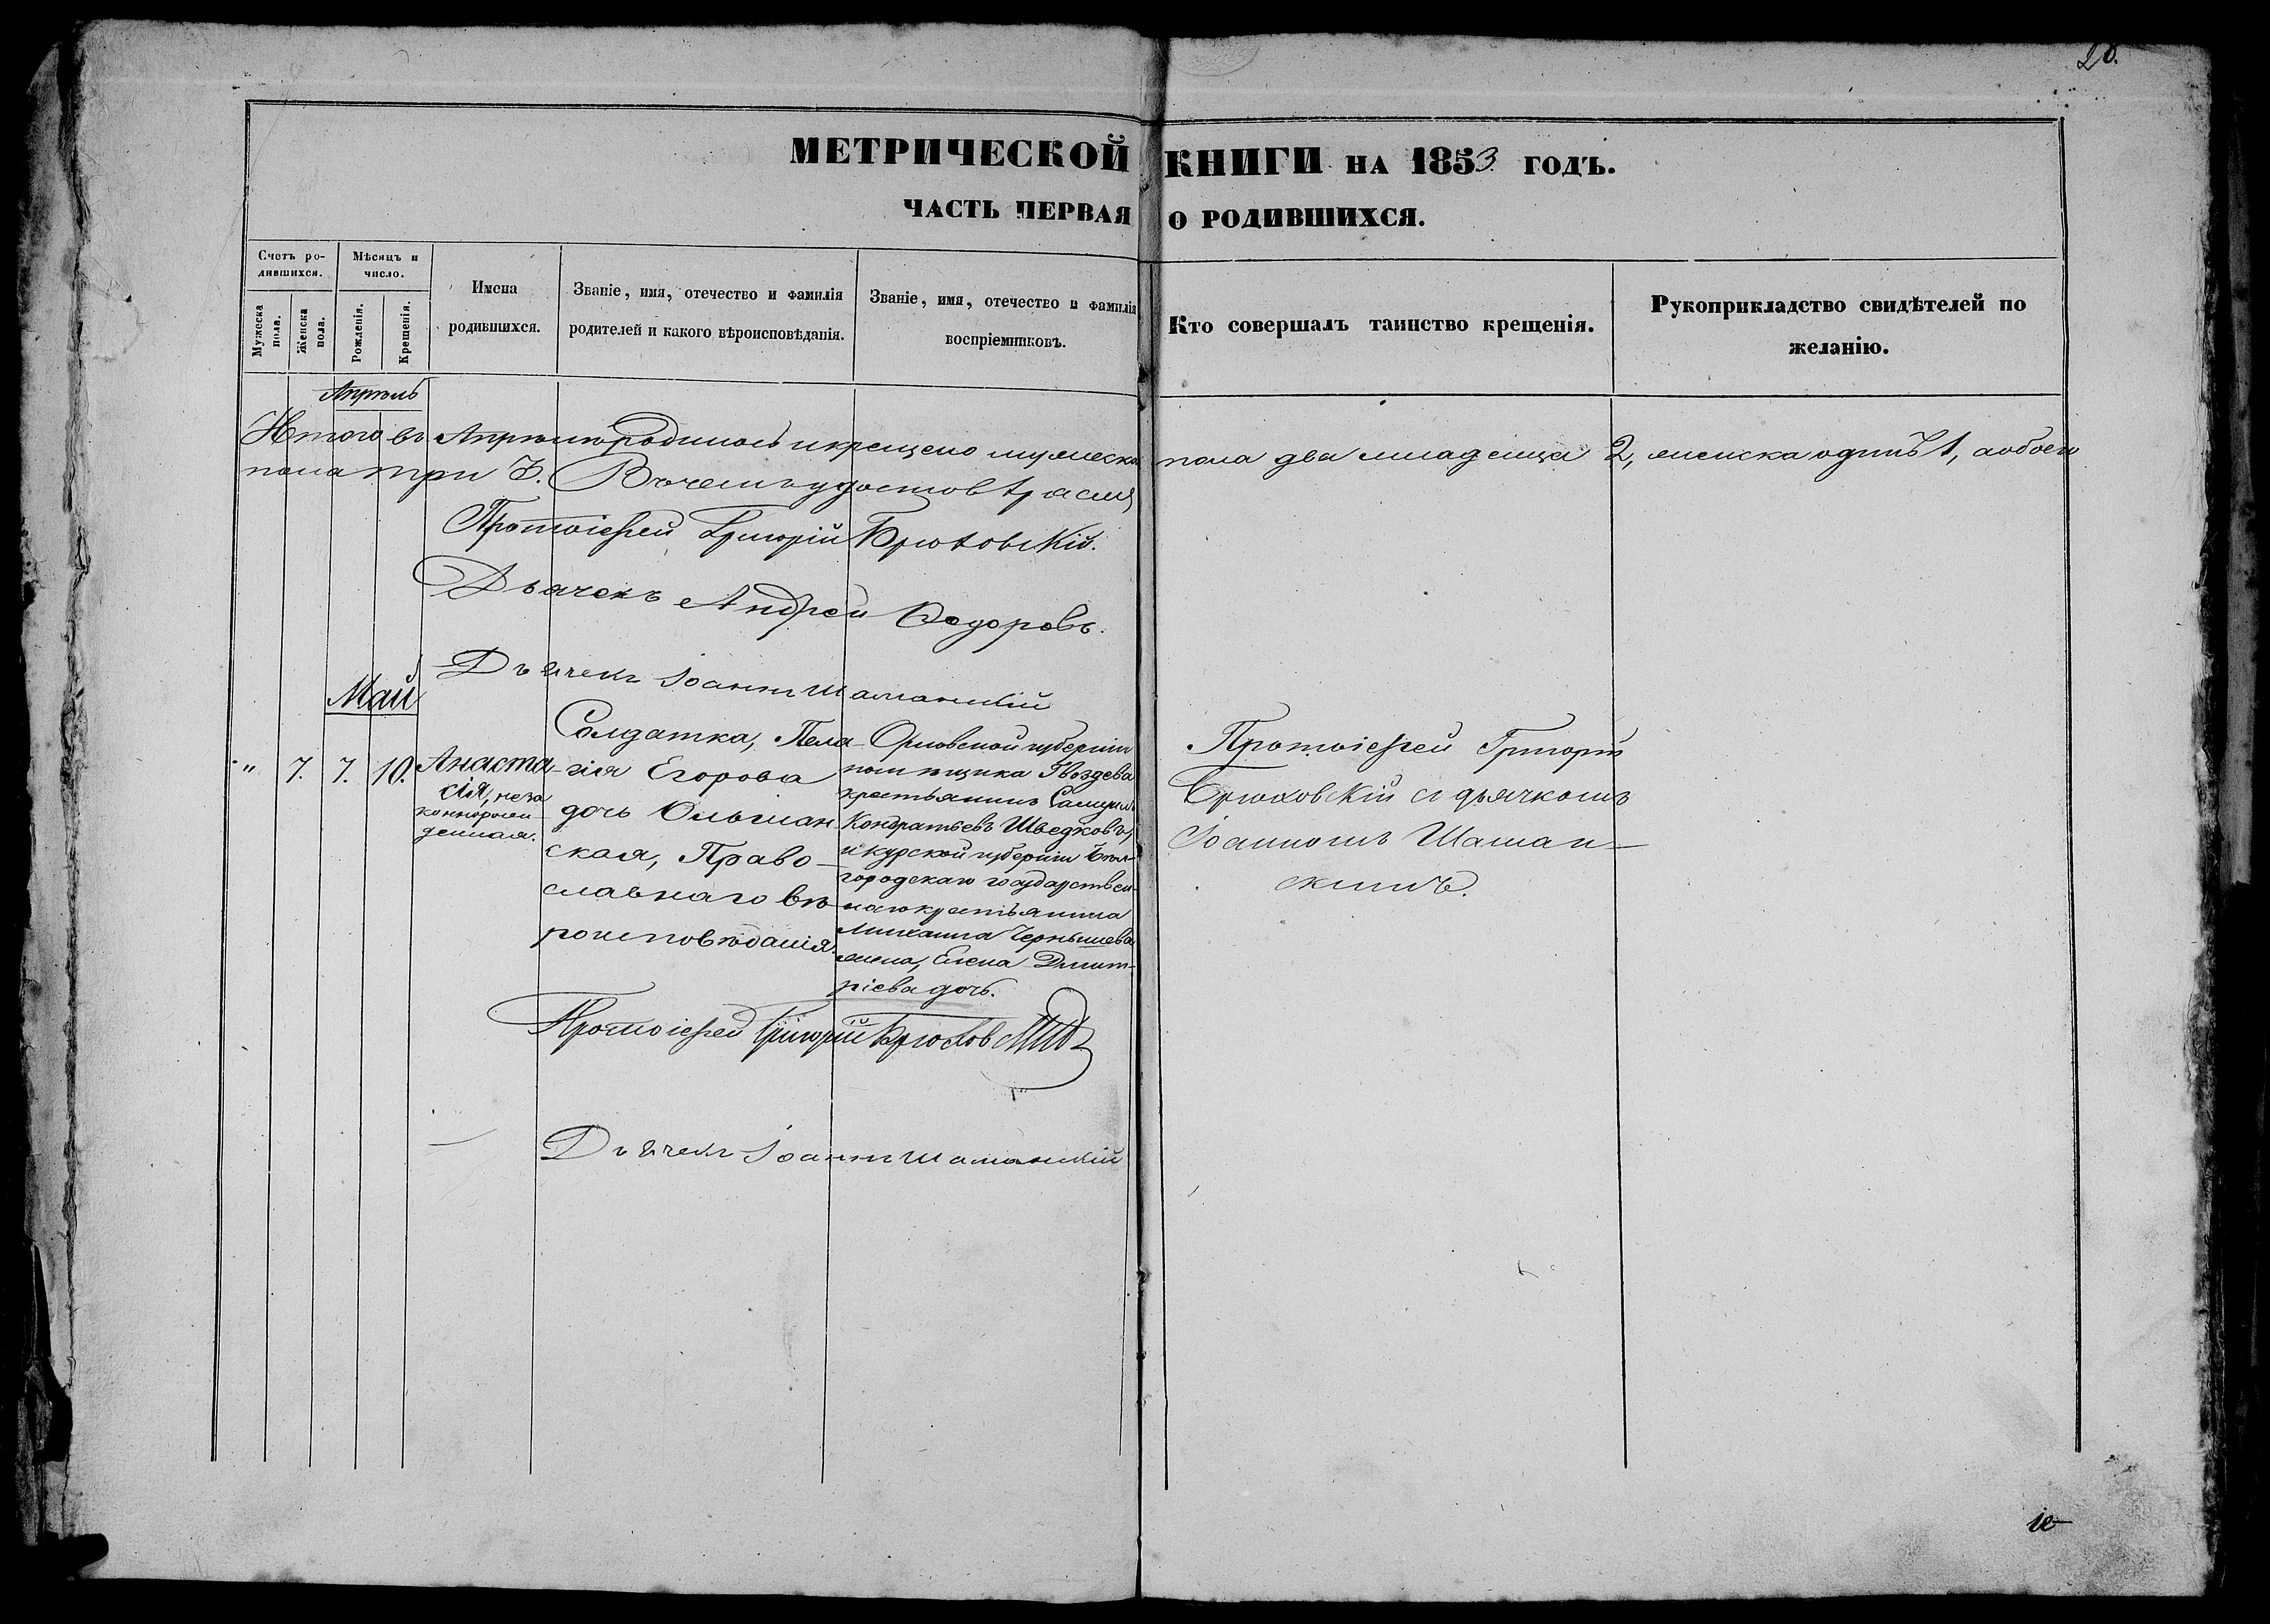 28.
МЕТРИЧЕСКОЙ КНИГИ НА 1853 ГОДЪ.
ЧАСТЬ ПЕРВАЯ О РОДИВШИХСЯ.
Счетъ родившихся.
Мужеска пола.
Женска пола.
Мѣсяцъ и число.
Рожденія.
Крещенія.
Имена родившихся.
Званіе, имя, отечество и фамилія родителей и какого вѣроисповѣданія.
Званіе, имя, отечество и фамилія воспріемниковъ.
Кто совершалъ таинство крещенія.
Рукоприкладство свидѣтелей по желанію.
Апрель
Итого въ Апрелѣ родилось и крещено мужеска пола два младенца 2, женска одинъ 1, а обоего
пола три 3. Въ чемъ удостовѣряемъ
Протоіерей Григорій Брюховскій.
Дьячекъ Андрей Ѳедоровъ.
Дьячекъ Іоаннъ Шаманскій
Май
" 7. 7. 10.
Анаста
сія, неза
коннорож
денная.
Солдатка, Пела
гія Егорова
дочь Ольшан
ская, Право
славнаго вѣ
роисповѣданія.
Орловской губерніи
помѣщика Гвоздева
крестьянинъ Самуилъ
Кондратьевъ Шведковъ,
и курской губерніи Бѣл-
городскаго государствен-
наго крестьянина
Михаила Чернышева
жена, Елена Дмит-
ріева дочь.
Протоіерей Григорій
Брюховскій съ дьячкомъ
Іоанномъ Шаман-
скимъ.
Протоіерей Григорій Брюховскій
Дьячекъ Іоаннъ Шаманскій